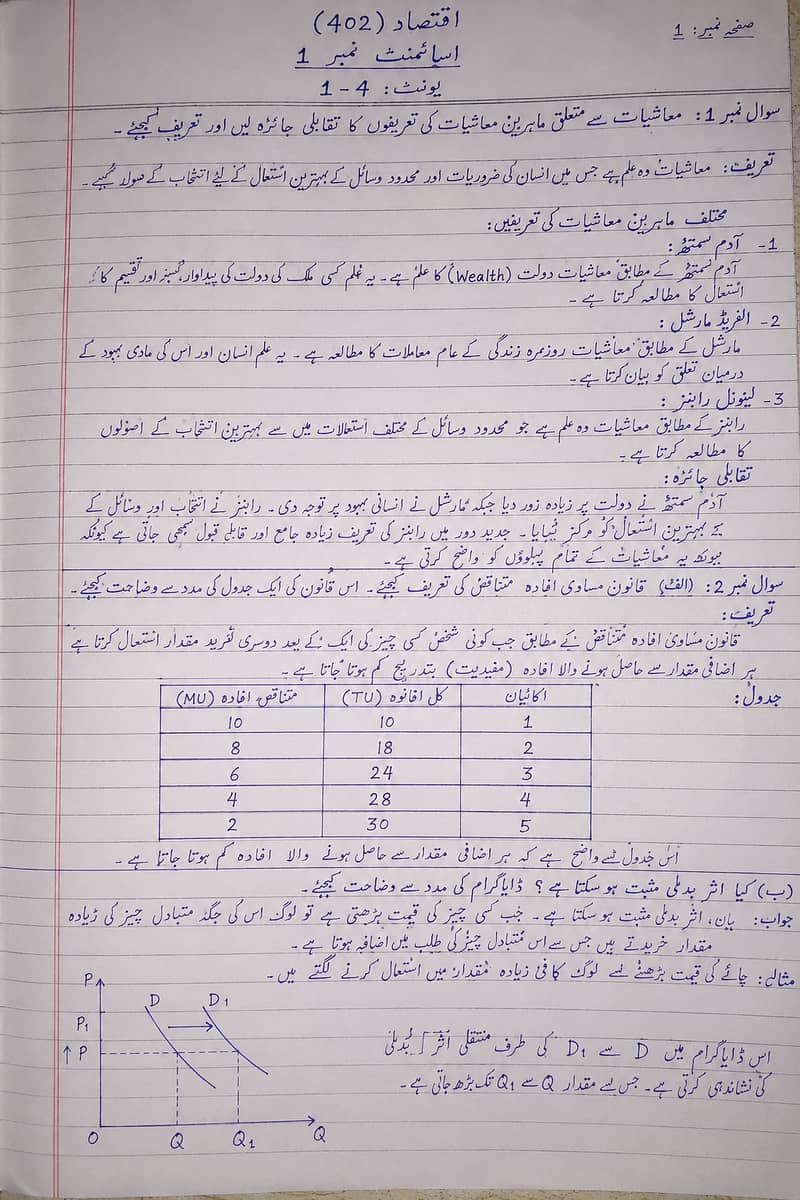 صفحہ نمبر: 1
اقتصاد (402)
اسائمنٹ نمبر 1
یونٹ: 4 - 1
سوال نمبر 1: معاشیات سے متعلق ماہرین معاشیات کی تعریفوں کا تقابلی جائزہ لیں اور تعریف کیجئے۔
تعریف: معاشیات وہ علم ہے جس میں انسان کی ضروریات اور محدود وسائل کے بہترین استعال کے لیٔے انتخاب کے
مختلف ماہرین معاشیات کی تعریفیں:
1- آدم سمتھ:
آدم سمتھ کے مطابق معاشیات دولت (Wealth) کا علم ہے۔ یہ علم کسی ملک کی دولت کی پیداوار، اور تقسیم کا
استعال کا مطالعہ کرتا ہے۔
2- الفریڈ مارشل:
مارشل کے مطابق معاشیات روزمرہ زندگی کے عام معاملات کا مطالعہ ہے۔ یہ علم انسان اور اس کی مادی بہبود کے
درمیان تعلق کو بیان کرتا ہے۔
3- لیونل رابنز:
رابنز کے مطابق معاشیات وہ علم ہے جو محدود وسائل کے مختلف استعالات میں سے بہترین انتخاب کے اصولوں
کا مطالعہ کرتا ہے۔
تقابلی جائزہ:
آدم سمتھ نے دولت پر زیادہ زور دیا جبکہ مارشل نے انسانی بہبود پر توجہ دی۔ رابنز نے انتخاب اور وسائل کے
بہترین استعال کو مرکز بنایا۔ جدید دور میں رابنز کی تعریف زیادہ جامع اور قابل قبول سمجھی جاتی ہے کیونکہ
یہ معاشیات کے تمام پہلوؤں کو واضح کرتی ہے۔
سوال نمبر 2: (الف) قانون مساوی افادہ متناقص کی تعریف کیجئے۔ اس قانون کی ایک جدول کی مدد سے وضاحت کیجئے۔
تعریف:
قانون مساوی افادہ متناقص کے مطابق جب کوئی شخص کسی چیز کی ایک کے بعد دوسری مقدار استعال کرتا ہے
ہر اضافی مقدار سے حاصل ہونے والا افادہ (مفیدیت) بتدریج کم ہوتا جاتا ہے۔
جدول:
اکائیاں | کل افانوہ (TU) | متناقص افادہ (MU)
1 | 10 | 10
2 | 18 | 8
3 | 24 | 6
4 | 28 | 4
5 | 30 | 2
اس جدول سے واضح ہے کہ ہر اضافی مقدار سے حاصل ہونے والا افادہ کم ہوتا جاتا ہے۔
(ب) کیا اثر بدلی مثبت ہو سکتا ہے؟ ڈایاگرام کی مدد سے وضاحت کیجئے۔
جواب: ہاں، اثر بدلی مثبت ہو سکتا ہے۔ جب کسی چیز کی قیمت بڑھتی ہے تو لوگ اس کی جگہ متبادل چیز کی زیادہ
مقدار خریدتے ہیں جس سے اس متبادل چیز کی طلب میں اضافہ ہوتا ہے۔
مثال: چائے کی قیمت بڑھنے سے لوگ کافی زیادہ مقدار میں استعال کرنے لگتے ہیں۔
P
D D1
P1
↑ P
O Q Q1 Q
اس ڈایاگرام میں D سے D1 کی طرف منتقلی اثر بدلی
کی نشاندہی کرتی ہے۔ جس سے مقدار Q سے Q1 تک بڑھ جاتی ہے۔